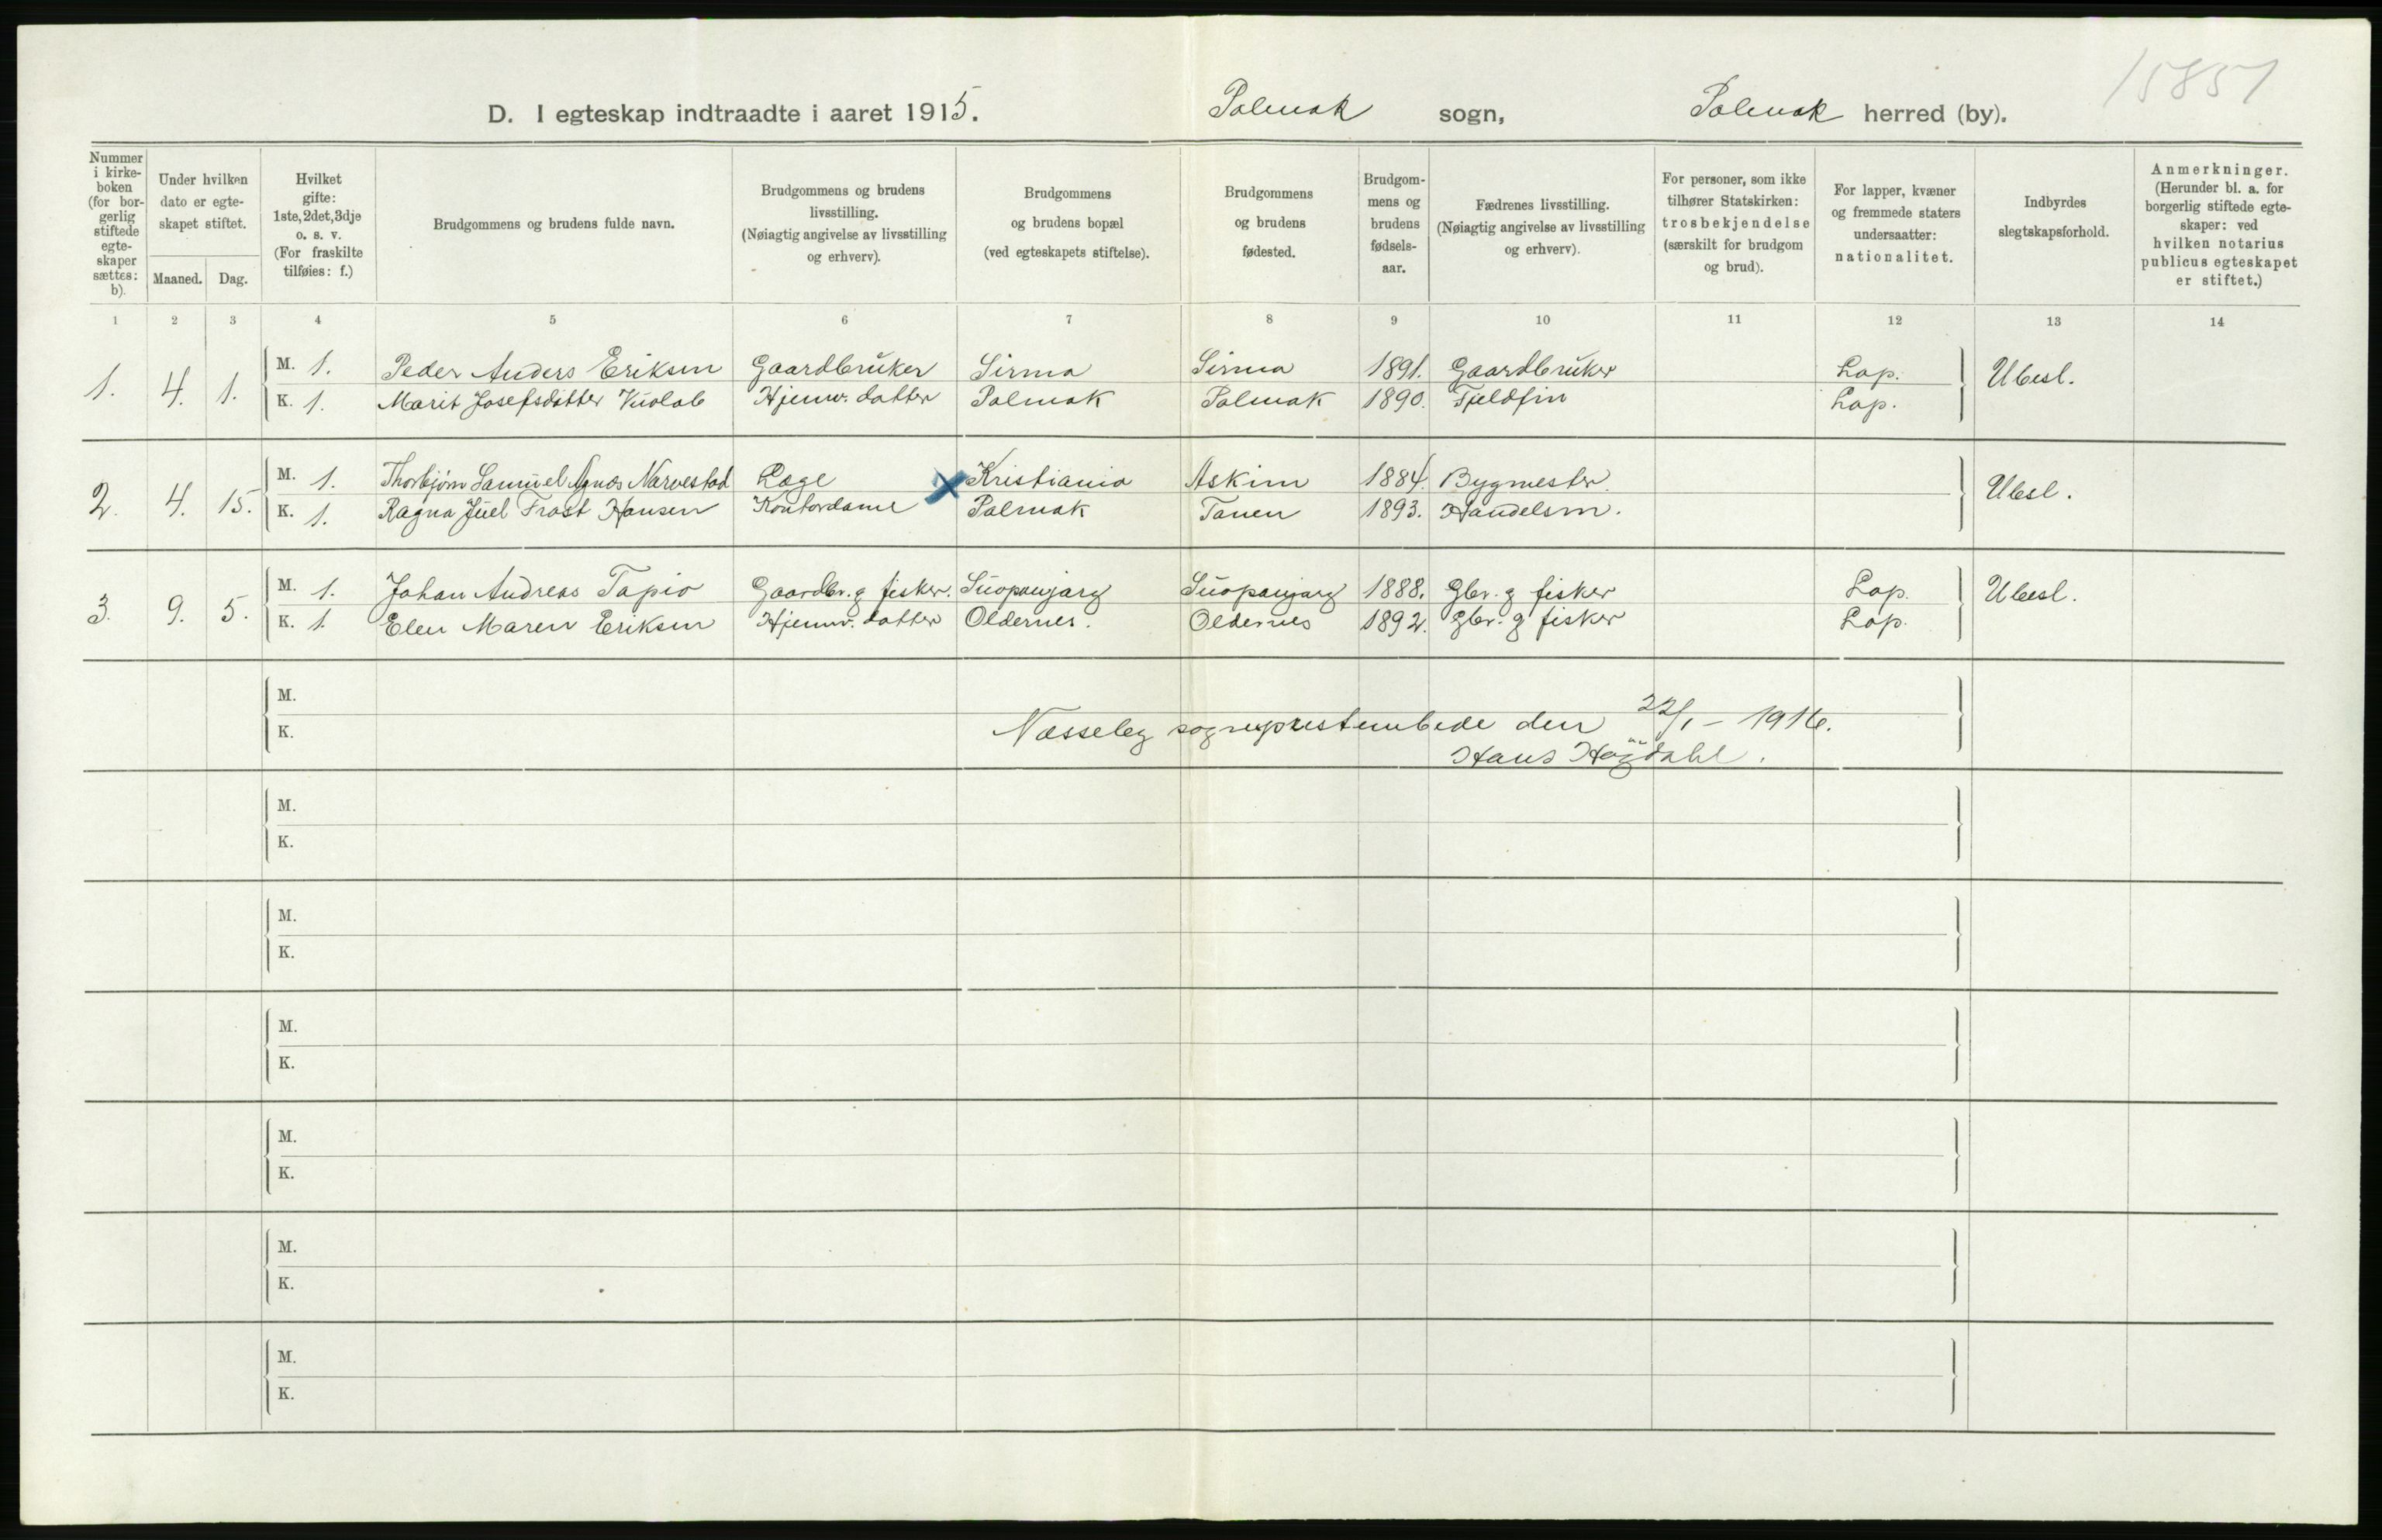 15851
D. I egteskap indtraadte i aaret 1915. Polmak sogn, Polmak herred (by).
Nummer i kirke-boken (for bor-gerlig stiftede egte-skaper sættes: b).
Under hvilken dato er egte-skapet stiftet.
Maaned. Dag.
Hvilket gifte: 1ste, 2det, 3dje o. s. v. (For fraskilte tilføies: f.)
Brudgommens og brudens fulde navn.
Brudgommens og brudens livsstilling. (Nøiagtig angivelse av livsstilling og erhverv).
Brudgommens og brudens bopæl (ved egteskapets stiftelse).
Brudgommens og brudens fødested.
Brudgom-mens og brudens fødsels-aar.
Fædrenes livsstilling. (Nøiagtig angivelse av livsstilling og erhverv).
For personer, som ikke tilhører Statskirken: trosbekjendelse (særskilt for brudgom og brud).
For lapper, kvæner og fremmede staters undersaatter: nationalitet.
Indbyrdes slegtskapsforhold.
Anmerkninger. (Herunder bl. a. for borgerlig stiftede egte-skaper: ved hvilken notarius publicus egteskapet er stiftet.)
1 2 3 4 5 6 7 8 9 10 11 12 13 14
1. 4. 1. M. 1. Peder Anders Eriksen Gaardbruker Sirma Sirma 1891. Gaardbruker Lap. Ubesl.
K. 1. Marit Josefsdatter Vuolab Hjemv. datter Polmak Polmak 1890. Fjeldfin Lap.
2. 4. 15. M. 1. Thorbjørn Samuel Agnæs Narvestad Læge X Kristiania Askim 1884. Bygmester. Ubesl.
K. 1. Ragna Juel Frost Hansen Kontordame Polmak Tanen 1893. Handelsm.
3. 9. 5. M. 1. Johan Andreas Tapio Gaardbr. g fisker. Suopanjarg Suopanjarg 1888. Gbr. g fisker Lap. Ubesl.
K. 1. Elen Maren Eriksen Hjemv. datter Oldernes. Oldernes 1892. Gbr. g fisker Lap.
M.
K. Nesseby sogneprestembede den 22/1 - 1916.
Hans Høgdahl.
M.
K.
M.
K.
M.
K.
M.
K.
M.
K.
M.
K.